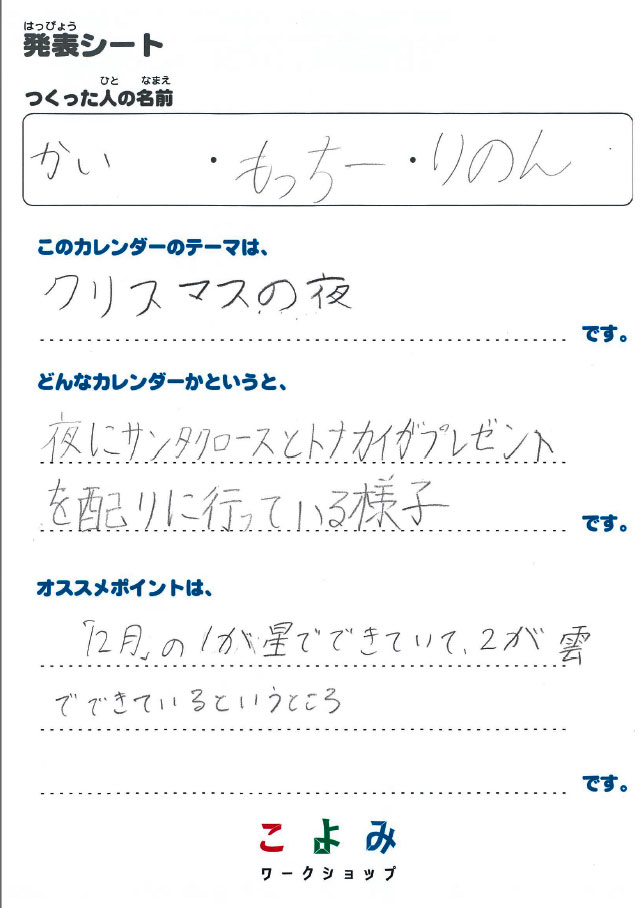 はっぴょう
発表シート
ひと なまえ
つくった人の名前
かい ・もっちー・りのん
このカレンダーのテーマは、
クリスマスの夜
です。
どんなカレンダーかというと、
夜にサンタクロースとトナカイがプレゼント
を配りに行っている様子
です。
オススメポイントは、
「12月」の1が星でできていて、2が雲
でできているというところ
です。
こよみ
ワークショップ